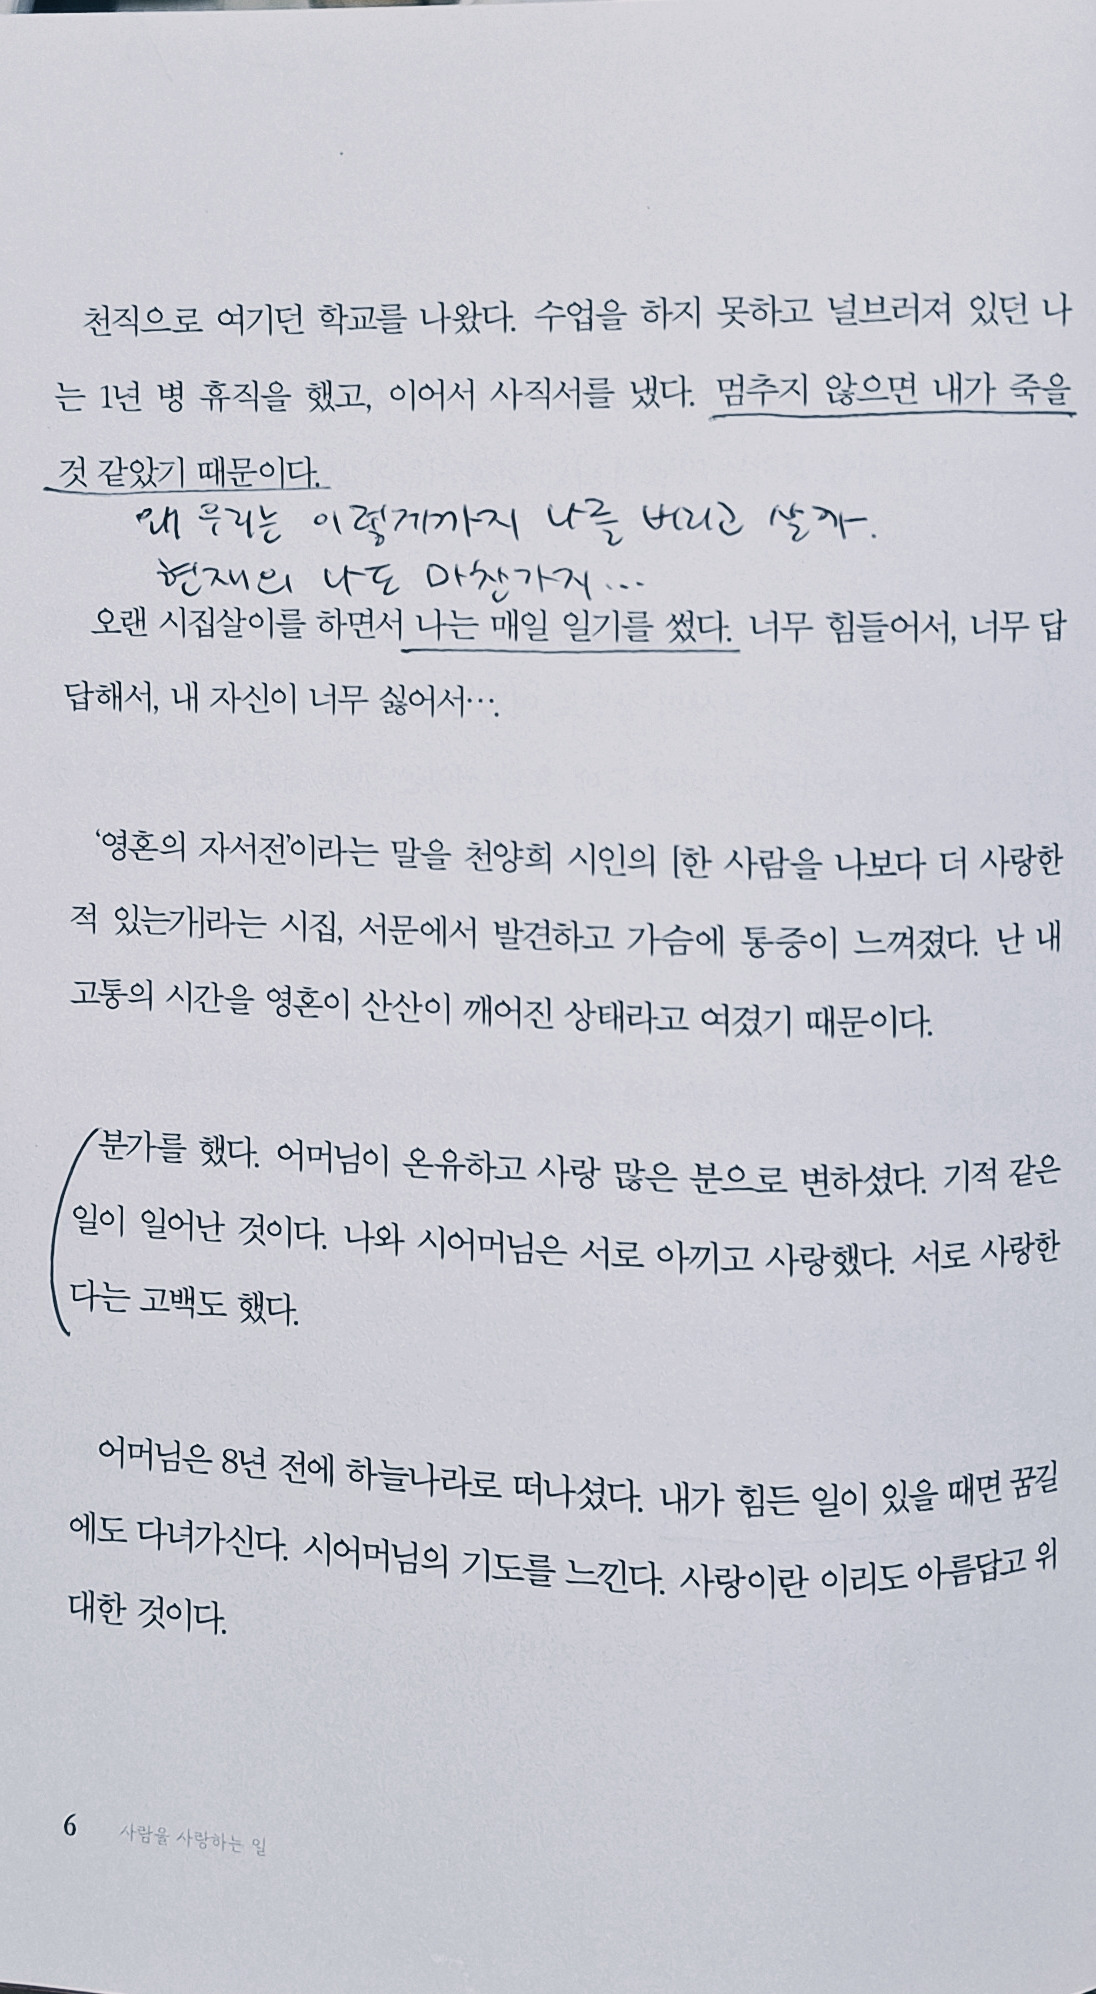 천직으로 여기던 학교를 나왔다. 수업을 하지 못하고 널브러져 있던 나
는 1년 병 휴직을 했고, 이어서 사직서를 냈다. 멈추지 않으면 내가 죽을
것 같았기 때문이다.
왜 우리는 이렇게까지 나를 버리고 살까.
현재의 나도 마찬가지...
오랜 시집살이를 하면서 나는 매일 일기를 썼다. 너무 힘들어서, 너무 답
답해서, 내 자신이 너무 싫어서….
‘영혼의 자서전’이라는 말을 천양희 시인의 [한 사람을 나보다 더 사랑한
적 있는가]라는 시집, 서문에서 발견하고 가슴에 통증이 느껴졌다. 난 내
고통의 시간을 영혼이 산산이 깨어진 상태라고 여겼기 때문이다.
분가를 했다. 어머님이 온유하고 사랑 많은 분으로 변하셨다. 기적 같은
일이 일어난 것이다. 나와 시어머님은 서로 아끼고 사랑했다. 서로 사랑한
다는 고백도 했다.
어머님은 8년 전에 하늘나라로 떠나셨다. 내가 힘든 일이 있을 때면 꿈길
에도 다녀가신다. 시어머님의 기도를 느낀다. 사랑이란 이리도 아름답고 위
대한 것이다.
6 사람을 사랑하는 일